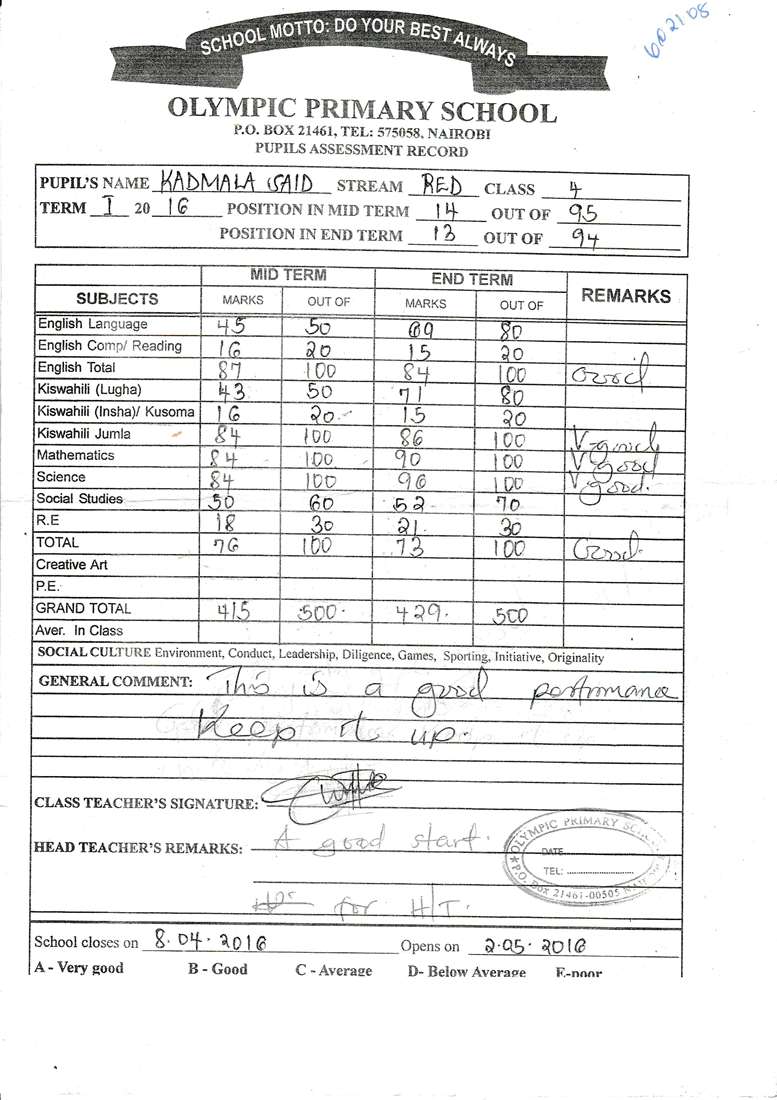 SCHOOL MOTTO: DO YOUR BEST ALWAYS
OLYMPIC PRIMARY SCHOOL
P.O. BOX 21461, TEL: 575058, NAIROBI
PUPILS ASSESSMENT RECORD
PUPIL'S NAME KADMALA SAID STREAM RED CLASS 4
TERM I 20 16 POSITION IN MID TERM 14 OUT OF 95
POSITION IN END TERM 13 OUT OF 94
MID TERM END TERM
SUBJECTS MARKS OUT OF MARKS OUT OF REMARKS
English Language 45 50 69 80
English Comp/ Reading 16 20 15 20
English Total 87 100 84 100 Good
Kiswahili (Lugha) 43 50 71 80
Kiswahili (Insha)/ Kusoma 16 20 15 20
Kiswahili Jumla 84 100 86 100 V-good
Mathematics 84 100 90 100 V good
Science 84 100 96 100 V good.
Social Studies 50 60 52 70
R.E 18 30 21 30
TOTAL 76 100 73 100 Good.
Creative Art
P.E.
GRAND TOTAL 415 500. 429. 500
Aver. In Class
SOCIAL CULTURE Environment, Conduct, Leadership, Diligence, Games, Sporting, Initiative, Originality
GENERAL COMMENT: This is a good perfromance
Keep it up.
CLASS TEACHER'S SIGNATURE:
HEAD TEACHER'S REMARKS: A good start.
OLYMPIC PRIMARY
DATE
TEL:
P.O. BOX 21461-00505
for H/T.
School closes on 8.04.2016 Opens on 2.05.2016
A - Very good B - Good C - Average D- Below Average E-poor